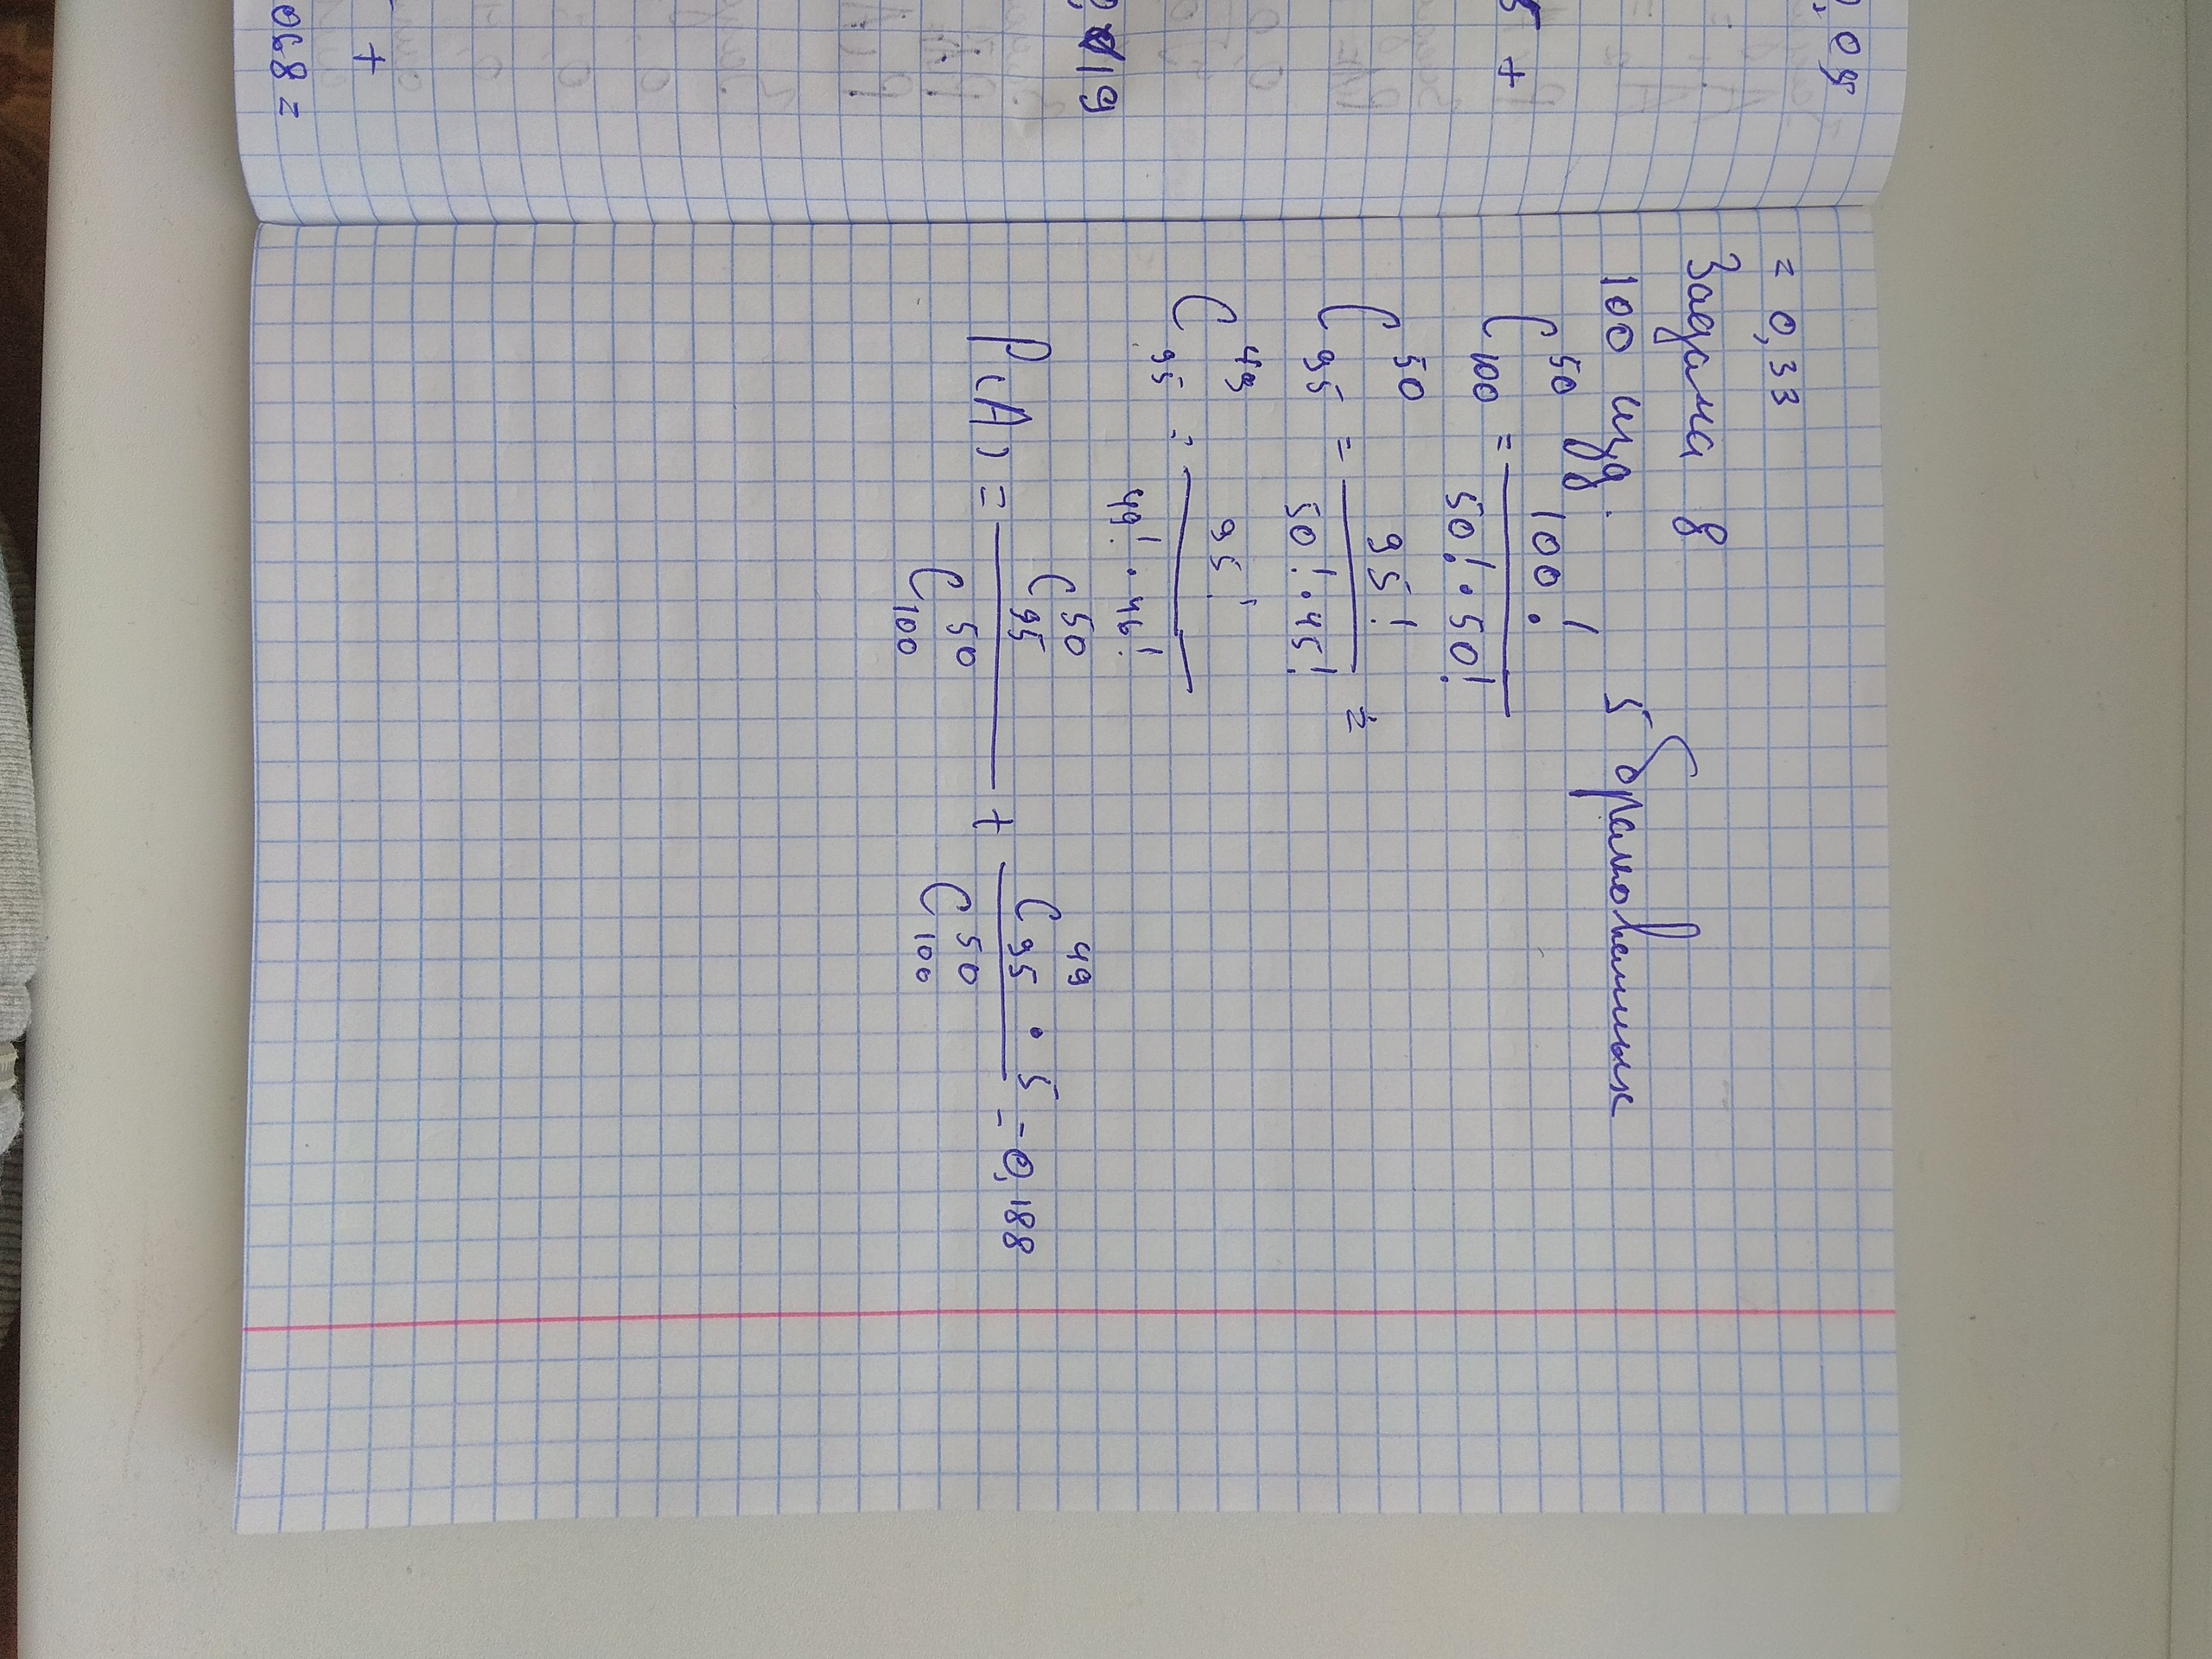 0,05
5 +
0,019
+
068 =
= 0,33
Задача 8
100 изд. 5 бракованных
C_{100}^{50} = \frac{100!}{50! \cdot 50!}
C_{95}^{50} = \frac{95!}{50! \cdot 45!} =
C_{95}^{49} = \frac{95!}{49! \cdot 46!}
P(A) = \frac{C_{95}^{50}}{C_{100}^{50}} + \frac{C_{95}^{49} \cdot 5}{C_{100}^{50}} = 0,188